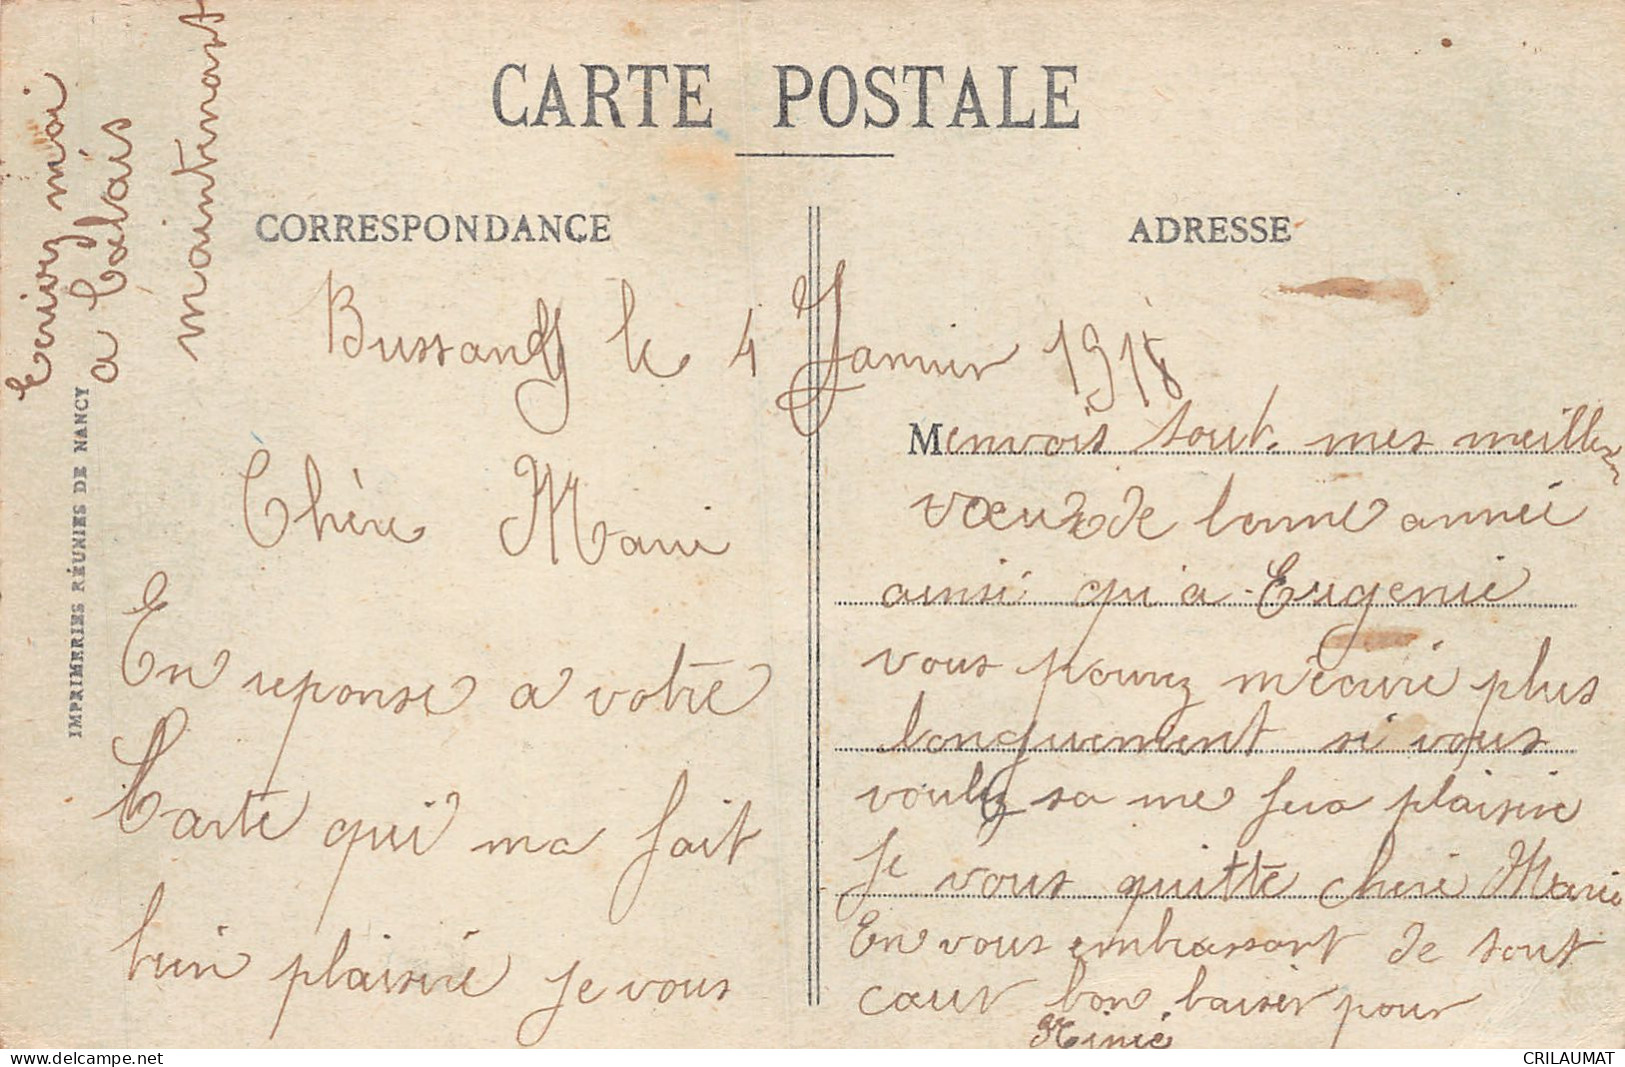 CARTE POSTALE
CORRESPONDANCE
ADRESSE
Ecrivez moi
a Calais
maintenant
IMPRIMERIES RÉUNIES DE NANCY
Bussang le 4 Janvier 1918
Chère Marie
En reponse a votre
Carte qui ma fait
bien plaisire je vous
Menvois tout mes meilleur
vœux de bonne année
ainsi qu'a Eugenie
vous pouvez m'ecrire plus
longuement si vous
voulez sa me fera plaisire
Je vous quitte chere Marie
En vous embrassant de tout
cœur bon baiser pour
www.delcampe.net
CRILAUMAT